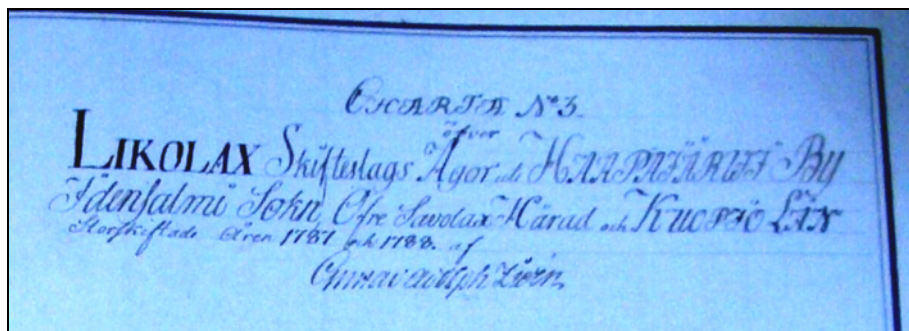 CHARTA No 3.
öfver
LIKOLAX Skifteslags Ägor uti HAAPAJÄRWI By
Idensalmi Sokn, Öfre Savolax Härad och KUOPIO LÄN
Storskiftade Åren 1787 och 1788. af
Gustav Adolph